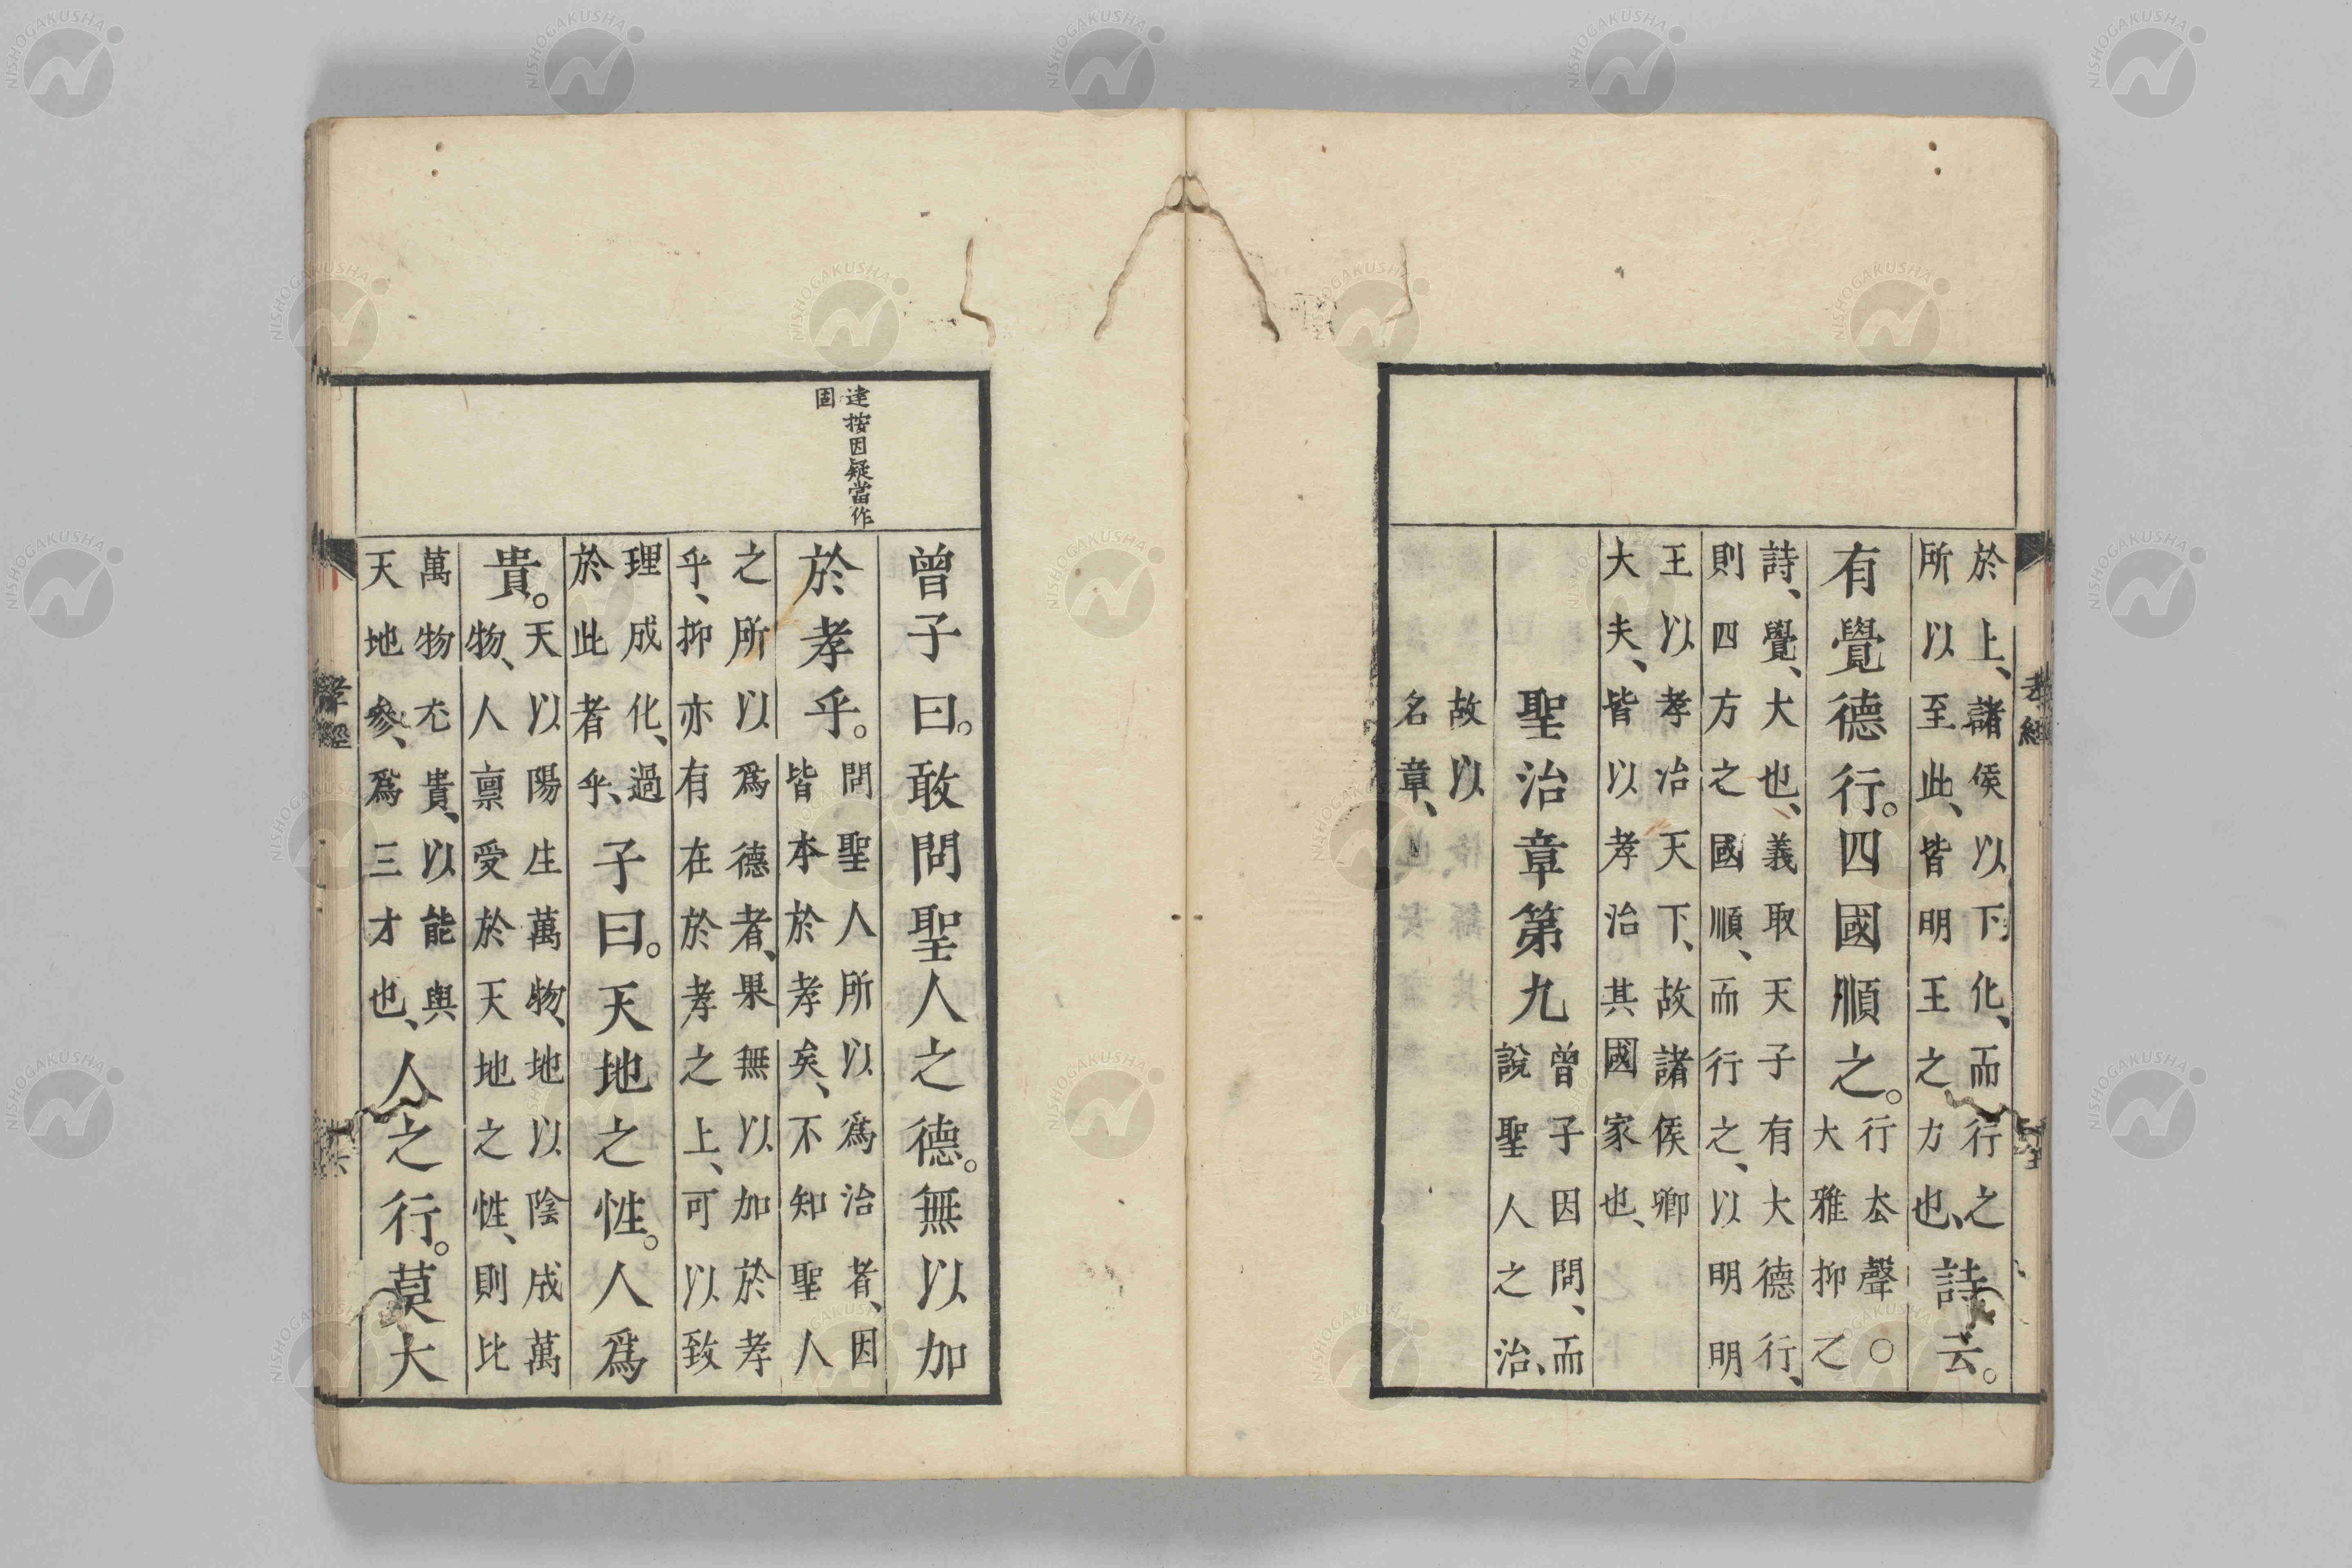 於上、諸侯以下化、而行之
所以至此、皆明王之力也、
詩云。
有覺德行。四國順之。
行厺聲○
大雅抑之
詩、覺、大也、義取天子有大德行、
則四方之國順、而行之、以明明
王以孝治天下、故諸侯卿
大夫、皆以孝治其國家也、
聖治章第九
曾子因問、而
說聖人之治、
故以
名章、
孝經
達按因疑當作
固
曾子曰。敢問聖人之德。無以加
於孝乎。
問聖人所以爲治者、因
皆本於孝矣、不知聖人
之所以爲德者、果無以加於孝
乎、抑亦有在於孝之上、可以致
理成化、過
於此者乎、
子曰。天地之性。人爲
貴。
天以陽生萬物、地以陰成萬
物、人稟受於天地之性、則比
萬物尢貴、以能與
天地參、爲三才也、
人之行。莫大
孝經
NISHOGAKUSHA